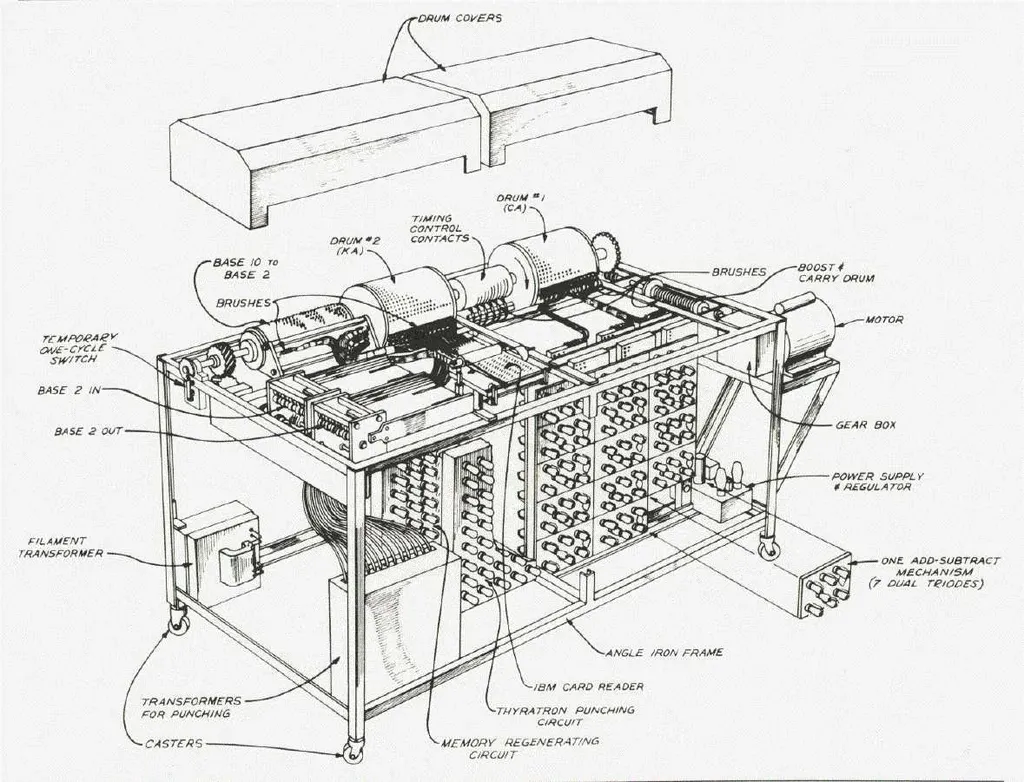 DRUM COVERS
DRUM #1
(CA)
TIMING
CONTROL
CONTACTS
DRUM #2
(KA)
BASE 10 TO
BASE 2
BRUSHES
BRUSHES
BOOST &
CARRY DRUM
MOTOR
TEMPORARY
ONE-CYCLE
SWITCH
BASE 2 IN
BASE 2 OUT
GEAR BOX
POWER SUPPLY
& REGULATOR
FILAMENT
TRANSFORMER
ONE ADD-SUBTRACT
MECHANISM
(7 DUAL TRIODES)
ANGLE IRON FRAME
IBM CARD READER
TRANSFORMERS
FOR PUNCHING
THYRATRON PUNCHING
CIRCUIT
CASTERS
MEMORY REGENERATING
CIRCUIT